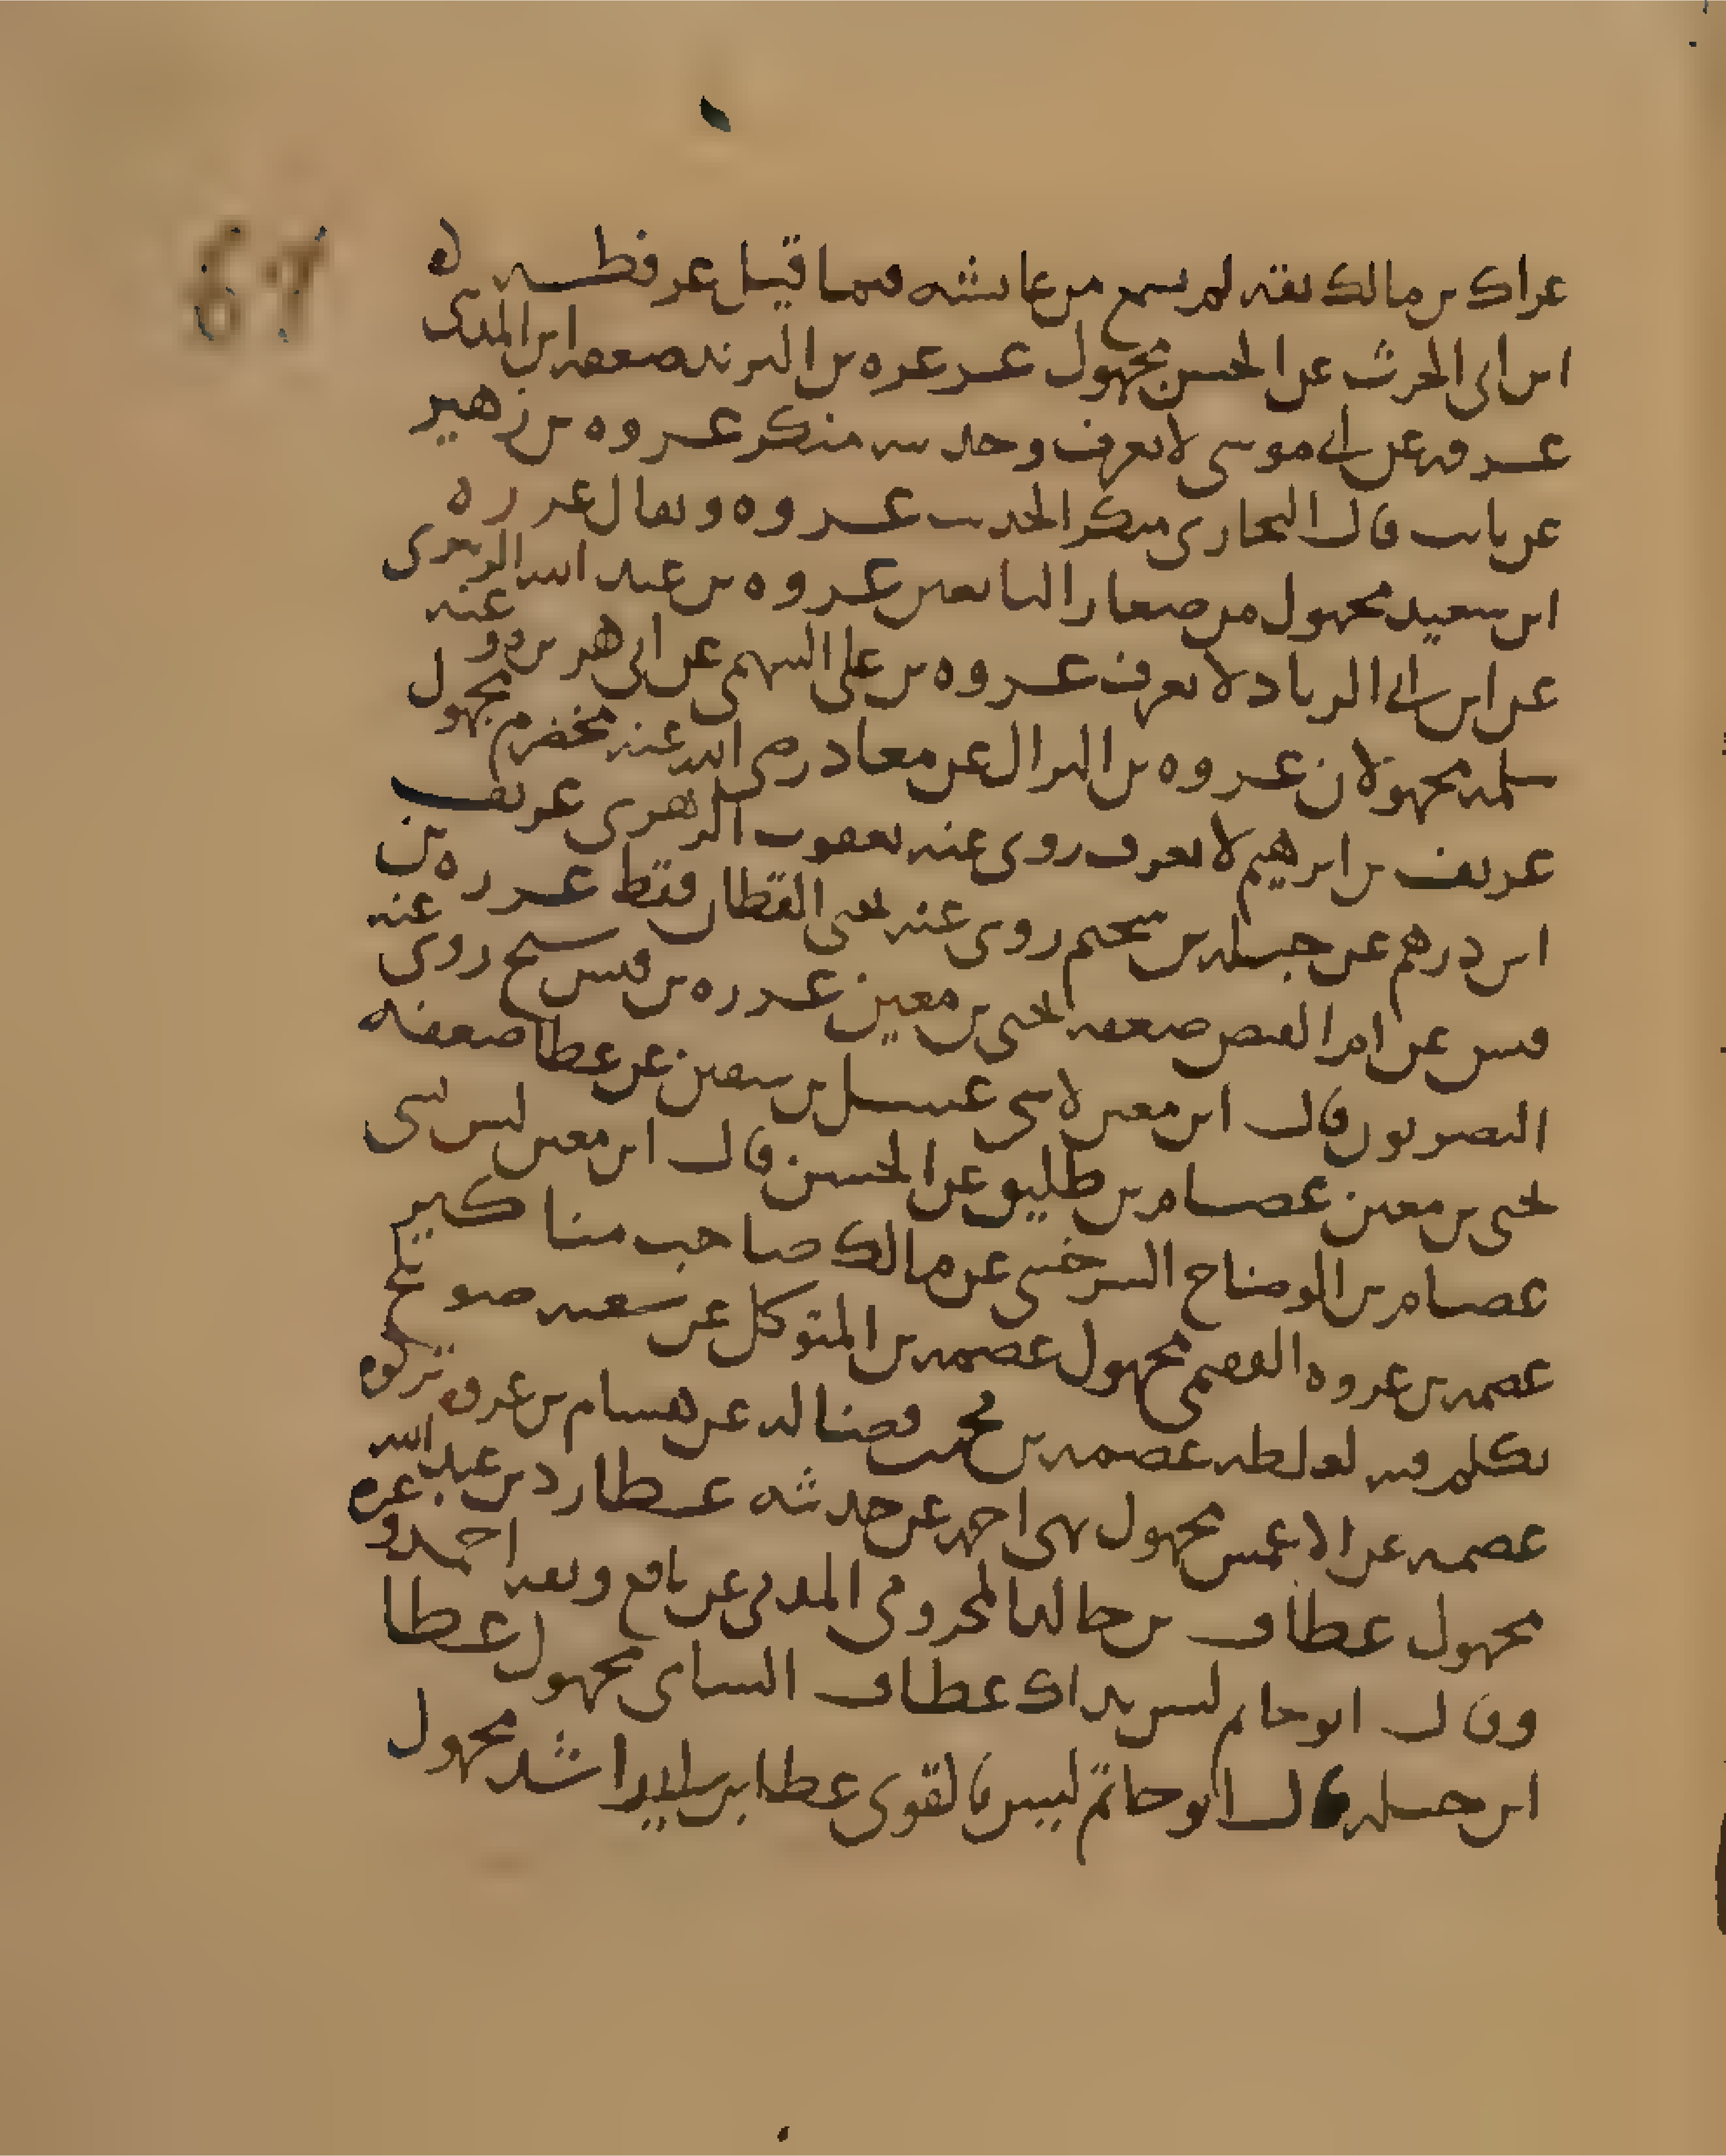 عراك بن مالك ثقة لم يسمع من عائشة فيما قيل عرفطة
ابن ابي الحرث عن الحسن مجهول عرعرة بن البرند ضعفه ابن المديني
عن ابي موسى لا يعرف وحديثه منكر عروة بن زهير
عن ثابت قال البخاري منكر الحديث عروة ويقال عزرة
ابن سعيد مجهول من صغار التابعين عروة بن عبد الله الزهري
عن ابن ابي الزناد لا يعرف عروة بن علي السهمي عن ابي هريرة وعنه
سلمة مجهولان عروة بن النزال عن معاذ رضي الله عنه مخضرم مجهول
عريف بن ابرهيم لا يعرف روى عنه يعقوب الزهري عريف
ابن درهم عن جبلة بن سحيم روى عنه يحيى القطان فقط عزرة بن
قيس عن ام الفيض ضعفه يحيى بن معين عزرة بن قيس شيخ روى عنه
البصريون قال ابن معين لا شي عسل بن سفين عن عطا ضعفه
يحيى بن معين عصام بن طليق عن الحسن قال ابن معين ليس بشي
عصام بن الوضاح السرخسي عن مالك صاحب مناكير
عصمة بن عروة الفقمي مجهول عصمة بن المتوكل عن سعبه صويلح
تكلم فيه لغلطه عصمة بن محمد فضالة عن هشام بن عروة تركوه
عصمة عن الاعمش مجهول نهى احمد عن حديثه عطارد بن عبد الله عره
مجهول عطاف بن خالد المخزومي المدني عن نافع وثقه احمد و
وقال ابو حاتم ليس بذاك عطاف الشامي مجهول عطا
ابن جبلة قال ابو حاتم ليس بالقوي عطا راشد مجهول